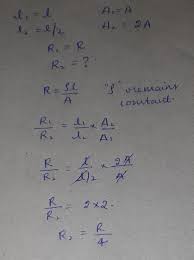 l₁ = l A₁ = A
l₂ = l/2 A₂ = 2A
R₁ = R
R₂ = ?
R = ρl/A "ρ" remains constant.
R₁/R₂ = l₁/l₂ × A₂/A₁
R/R₂ = l/(l/2) × 2A/A
R/R₂ = 2×2.
R₂ = R/4